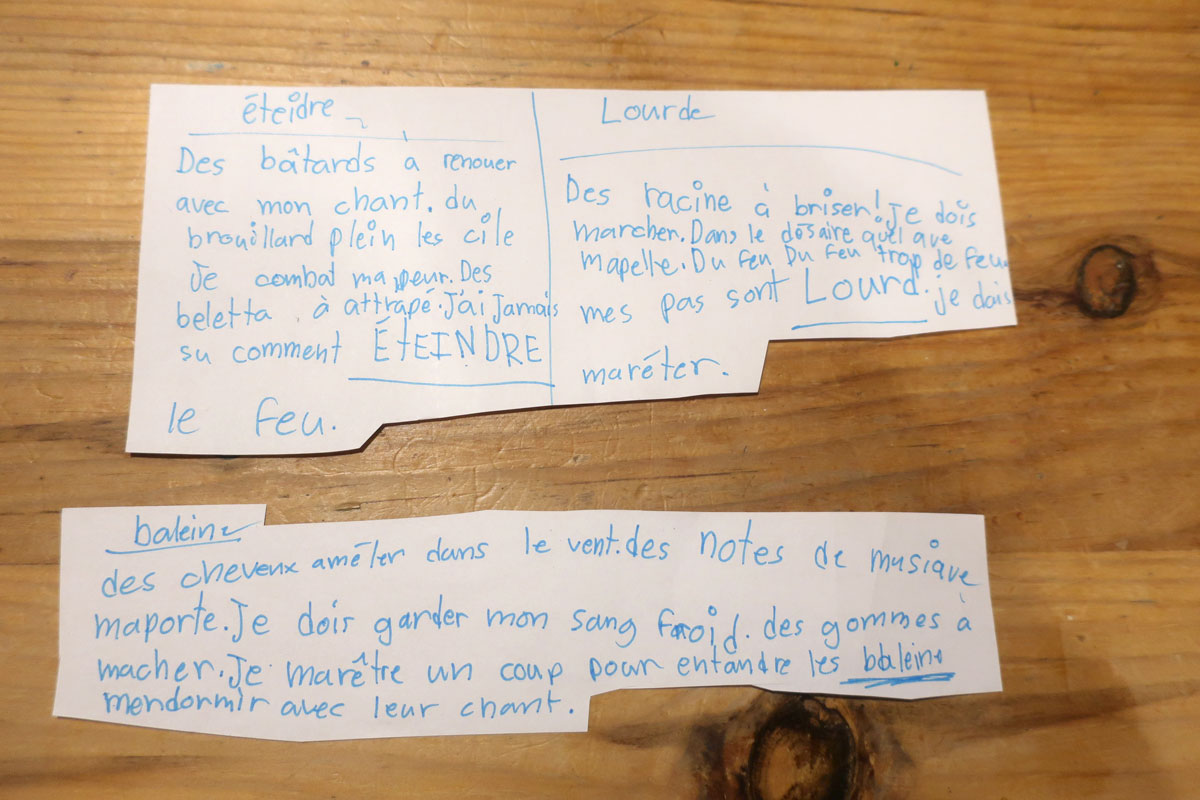 éteidre
Des bâtards a renouer
avec mon chant. du
brouillard plein les cile
Je combat ma peur. Des
beletta à attrapé. J'ai Jamais
su comment ÉtEINDRE
le feu.
Lourde
Des racine à briser! Je dois
marcher. Dans le désaire quel que
mapelle. Du feu Du feu trop de feu.
mes pas sont Lourd. je dois
maréter.
baleine
des cheveux améler dans le vent. des notes de musique
maporte. Je dois garder mon sang froid. des gommes à
macher. Je marêtre un coup pour entandre les baleine
mendormir avec leur chant.